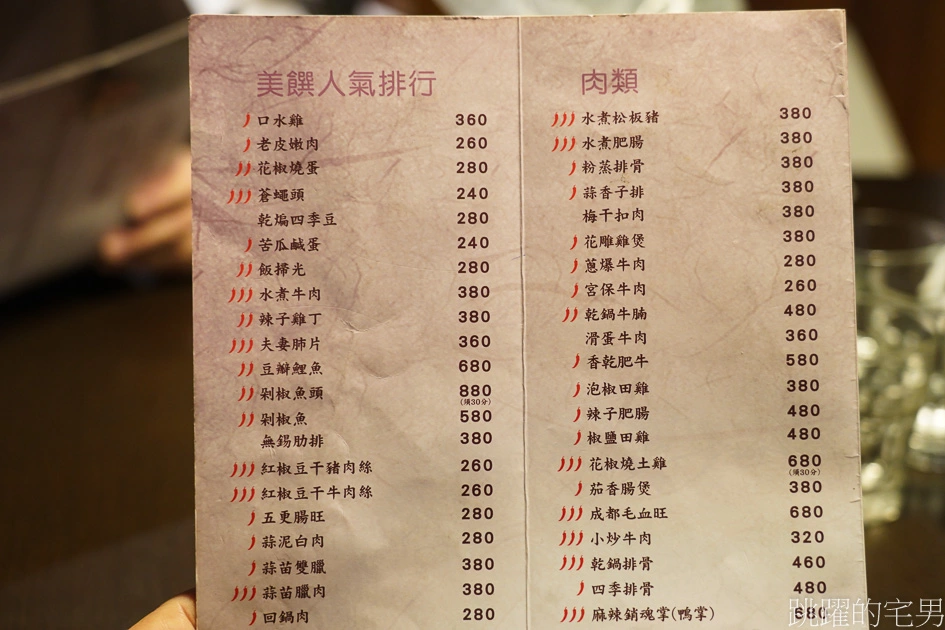 美饌人氣排行
口水雞 360
老皮嫩肉 260
花椒燒蛋 280
蒼蠅頭 240
乾煸四季豆 280
苦瓜鹹蛋 240
飯掃光 280
水煮牛肉 380
辣子雞丁 380
夫妻肺片 360
豆瓣鯉魚 680
剁椒魚頭 880
(須30分)
剁椒魚 580
無錫肋排 380
紅椒豆干豬肉絲 260
紅椒豆干牛肉絲 260
五更腸旺 280
蒜泥白肉 280
蒜苗雙臘 380
蒜苗臘肉 380
回鍋肉 280
肉類
水煮松板豬 380
水煮肥腸 380
粉蒸排骨 380
蒜香子排 380
梅干扣肉 380
花雕雞煲 380
蔥爆牛肉 280
宮保牛肉 260
乾鍋牛腩 480
滑蛋牛肉 360
香乾肥牛 580
泡椒田雞 380
辣子肥腸 480
椒鹽田雞 480
花椒燒土雞 680
(須30分)
茄香腸煲 380
成都毛血旺 680
小炒牛肉 320
乾鍋排骨 460
四季排骨 480
麻辣銷魂掌(鴨掌) 680
跳躍的宅男